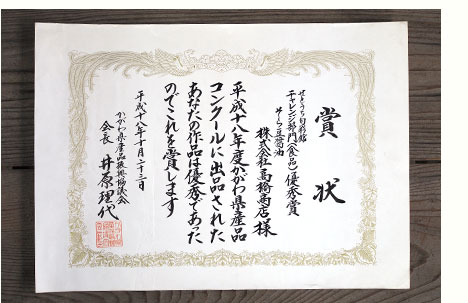 賞状
せとうち旬彩館
チャレンジ部門(食品)優秀賞
そら豆醤油
株式会社高橋商店様
平成十八年度かがわ県産品
コンクールに出品された
あなたの作品は優秀であった
のでこれを賞します
平成十八年十月二十三日
かがわ県産品振興協議会
会長 井原理代